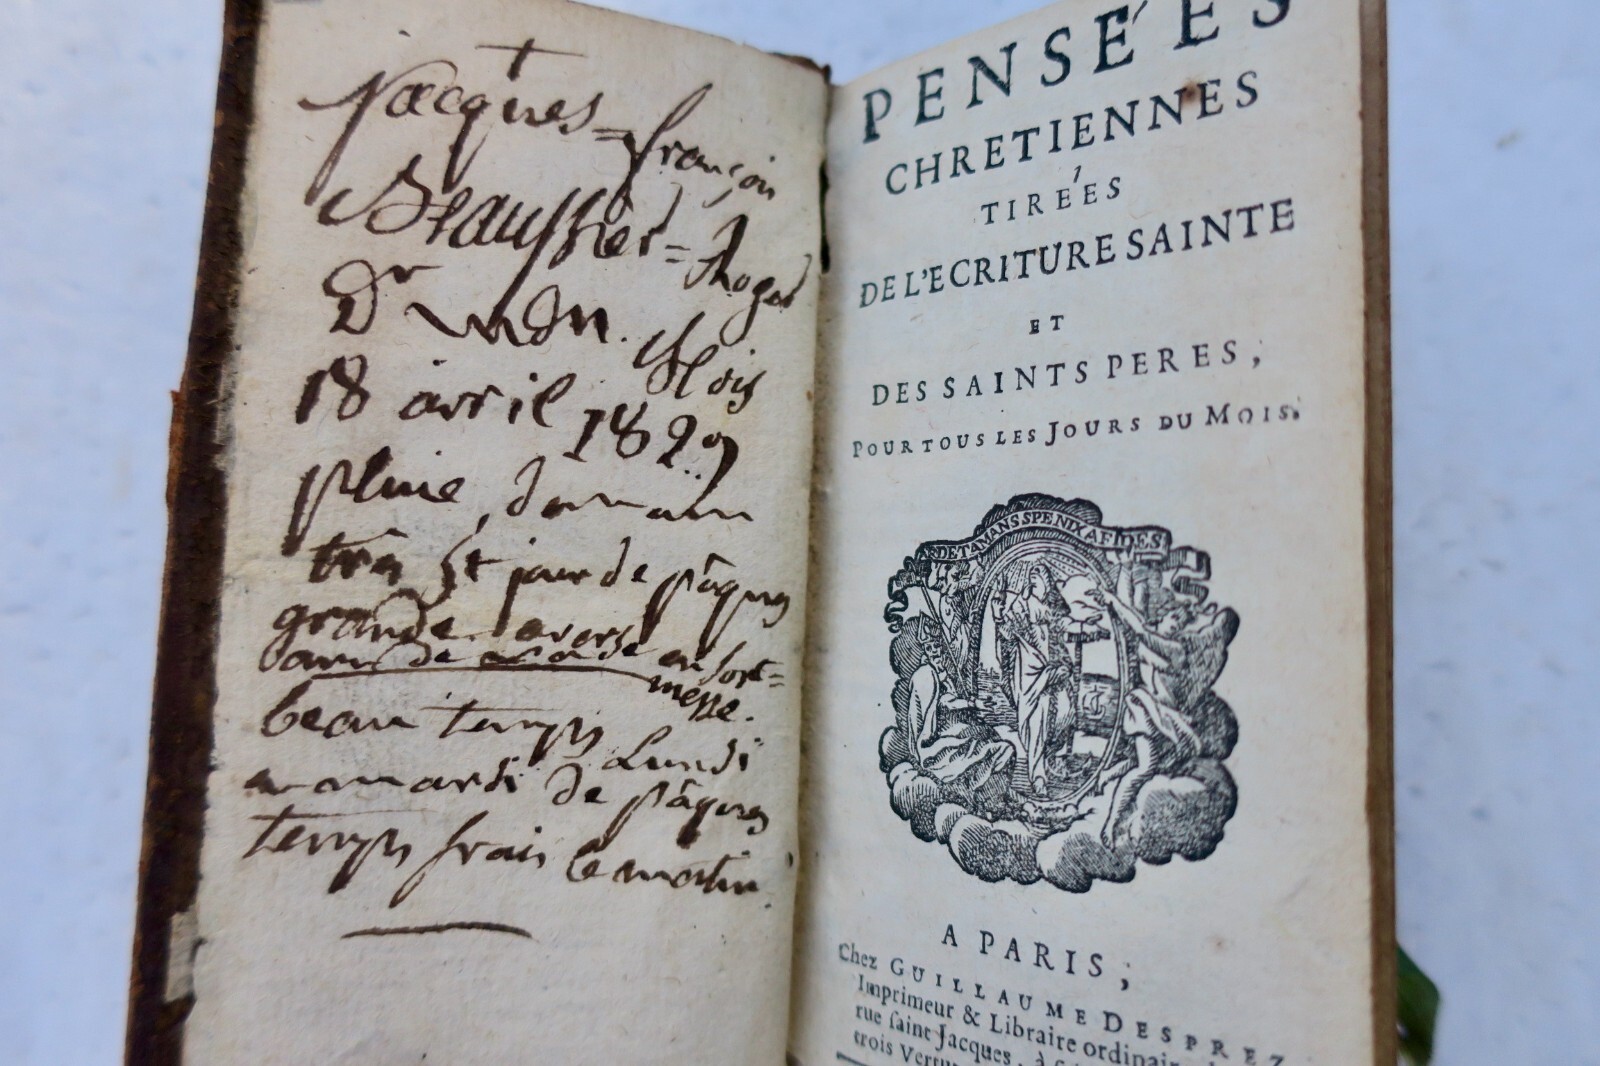 Jacques = françois
Beaussier =
Dr mdn. Blois
18 avril 1829
pluie, demain
très St jour de pâques
grande averse
en sort=
messe.
beau temps Lundi
mardi de pâques
temps frais le matin.
PENSÉES
CHRETIENNES
TIRÉES
DE L'ECRITURE SAINTE
ET
DES SAINTS PERES,
POUR TOUS LES JOURS DU MOIS.
ARDET AMANS SPE NIXA FIDES
A PARIS,
Chez GUILLAUME DESPREZ
Imprimeur & Libraire ordinai
rue saint Jacques, à
trois Vertu